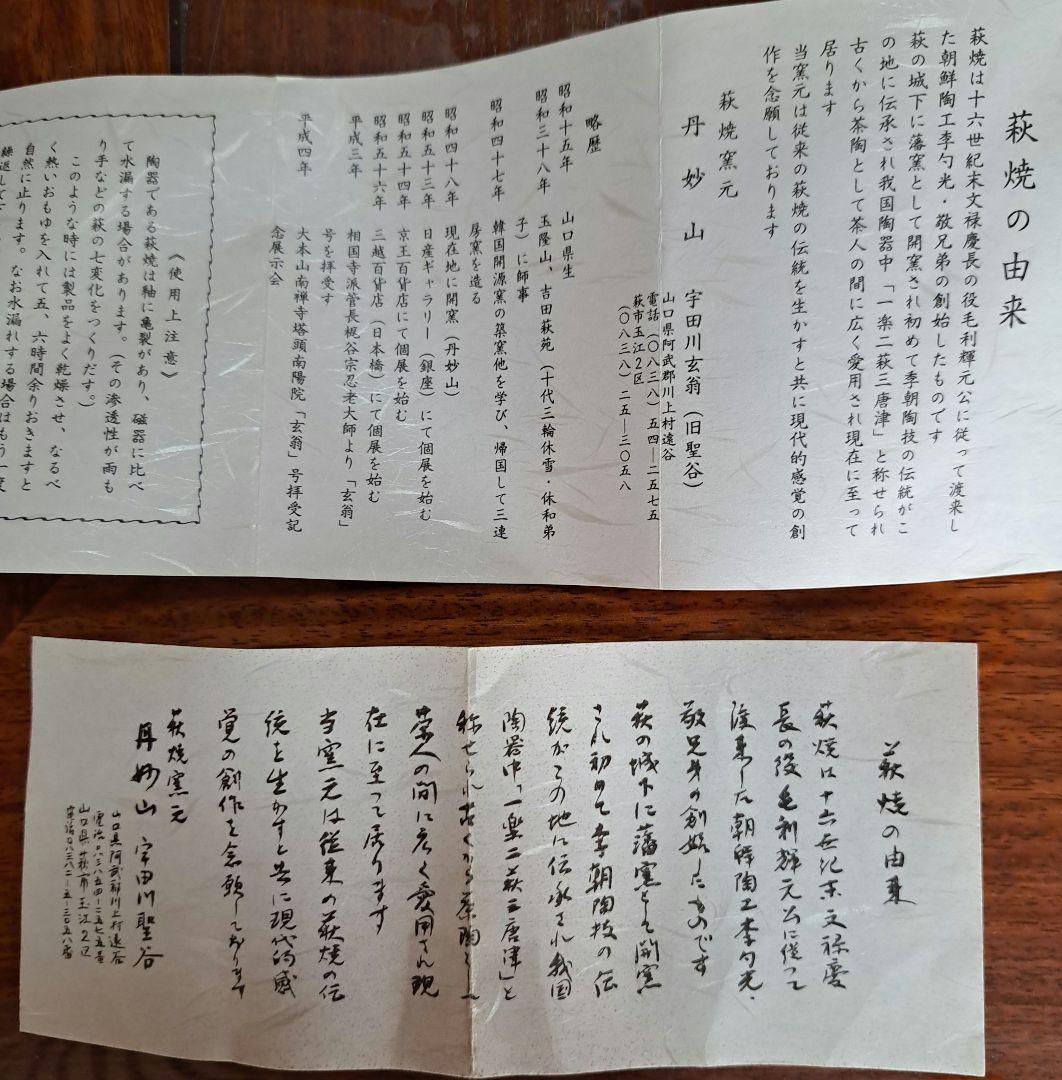 萩焼の由来
萩焼は十六世紀末文禄慶長の役毛利輝元公に従って渡来し
た朝鮮陶工李勺光・敬兄弟の創始したものです
萩の城下に藩窯として開窯され初めて李朝陶技の伝統がこ
の地に伝承され我国陶器中「一楽二萩三唐津」と称せられ
古くから茶陶として茶人の間に広く愛用され現在に至って
居ります
当窯元は従来の萩焼の伝統を生かすと共に現代的感覚の創
作を念願しております
萩焼窯元
丹妙山 宇田川玄翁（旧聖谷）
山口県阿武郡川上村遠谷
電話（〇八三八）五四―二五七五
萩市玉江２区
（〇八三八）二五―三〇五八
略歴
昭和十五年 山口県生
昭和三十八年 玉隆山、吉田萩苑（十代三輪休雪・休和弟
子）に師事
昭和四十七年 韓国開源窯の築窯他を学び、帰国して三連
房窯を造る
昭和四十八年 現在地に開窯（丹妙山）
昭和五十三年 日産ギャラリー（銀座）にて個展を始む
昭和五十四年 京王百貨店にて個展を始む
昭和五十六年 三越百貨店（日本橋）にて個展を始む
平成三年 相国寺派管長梶谷宗忍老大師より「玄翁」
号を拝受す
平成四年 大本山南禅寺塔頭南陽院「玄翁」号拝受記
念展示会
《使用上注意》
陶器である萩焼は釉に亀裂があり、磁器に比べ
て水漏する場合があります。（その滲透性が雨も
り手などの萩の七変化をつくりだす。）
このような時には製品をよく乾燥させ、なるべ
く熱いおもゆを入れて五、六時間余りおきますと
自然に止ります。なお水漏れする場合はもう一度
繰返して下
萩焼の由来
萩焼は十六世紀末文禄慶
長の役毛利輝元公に従って
渡来した朝鮮陶工李勺光・
敬兄弟の創始したものです
萩の城下に藩窯として開窯
され初めて李朝陶技の伝
統がこの地に伝承され我国
陶器中「一楽二萩三唐津」と
称せられ古くから茶陶とし
茶人の間に広く愛用され現
在に至って居ります
当窯元は従来の萩焼の伝
統を生かすと共に現代的感
覚の創作を念願しております
萩焼窯元
丹妙山 宇田川聖谷
山口県阿武郡川上村遠谷
電話〇八三八五四―二五七五番
山口県萩市玉江２区
電話〇八三八二―五―三〇五八番